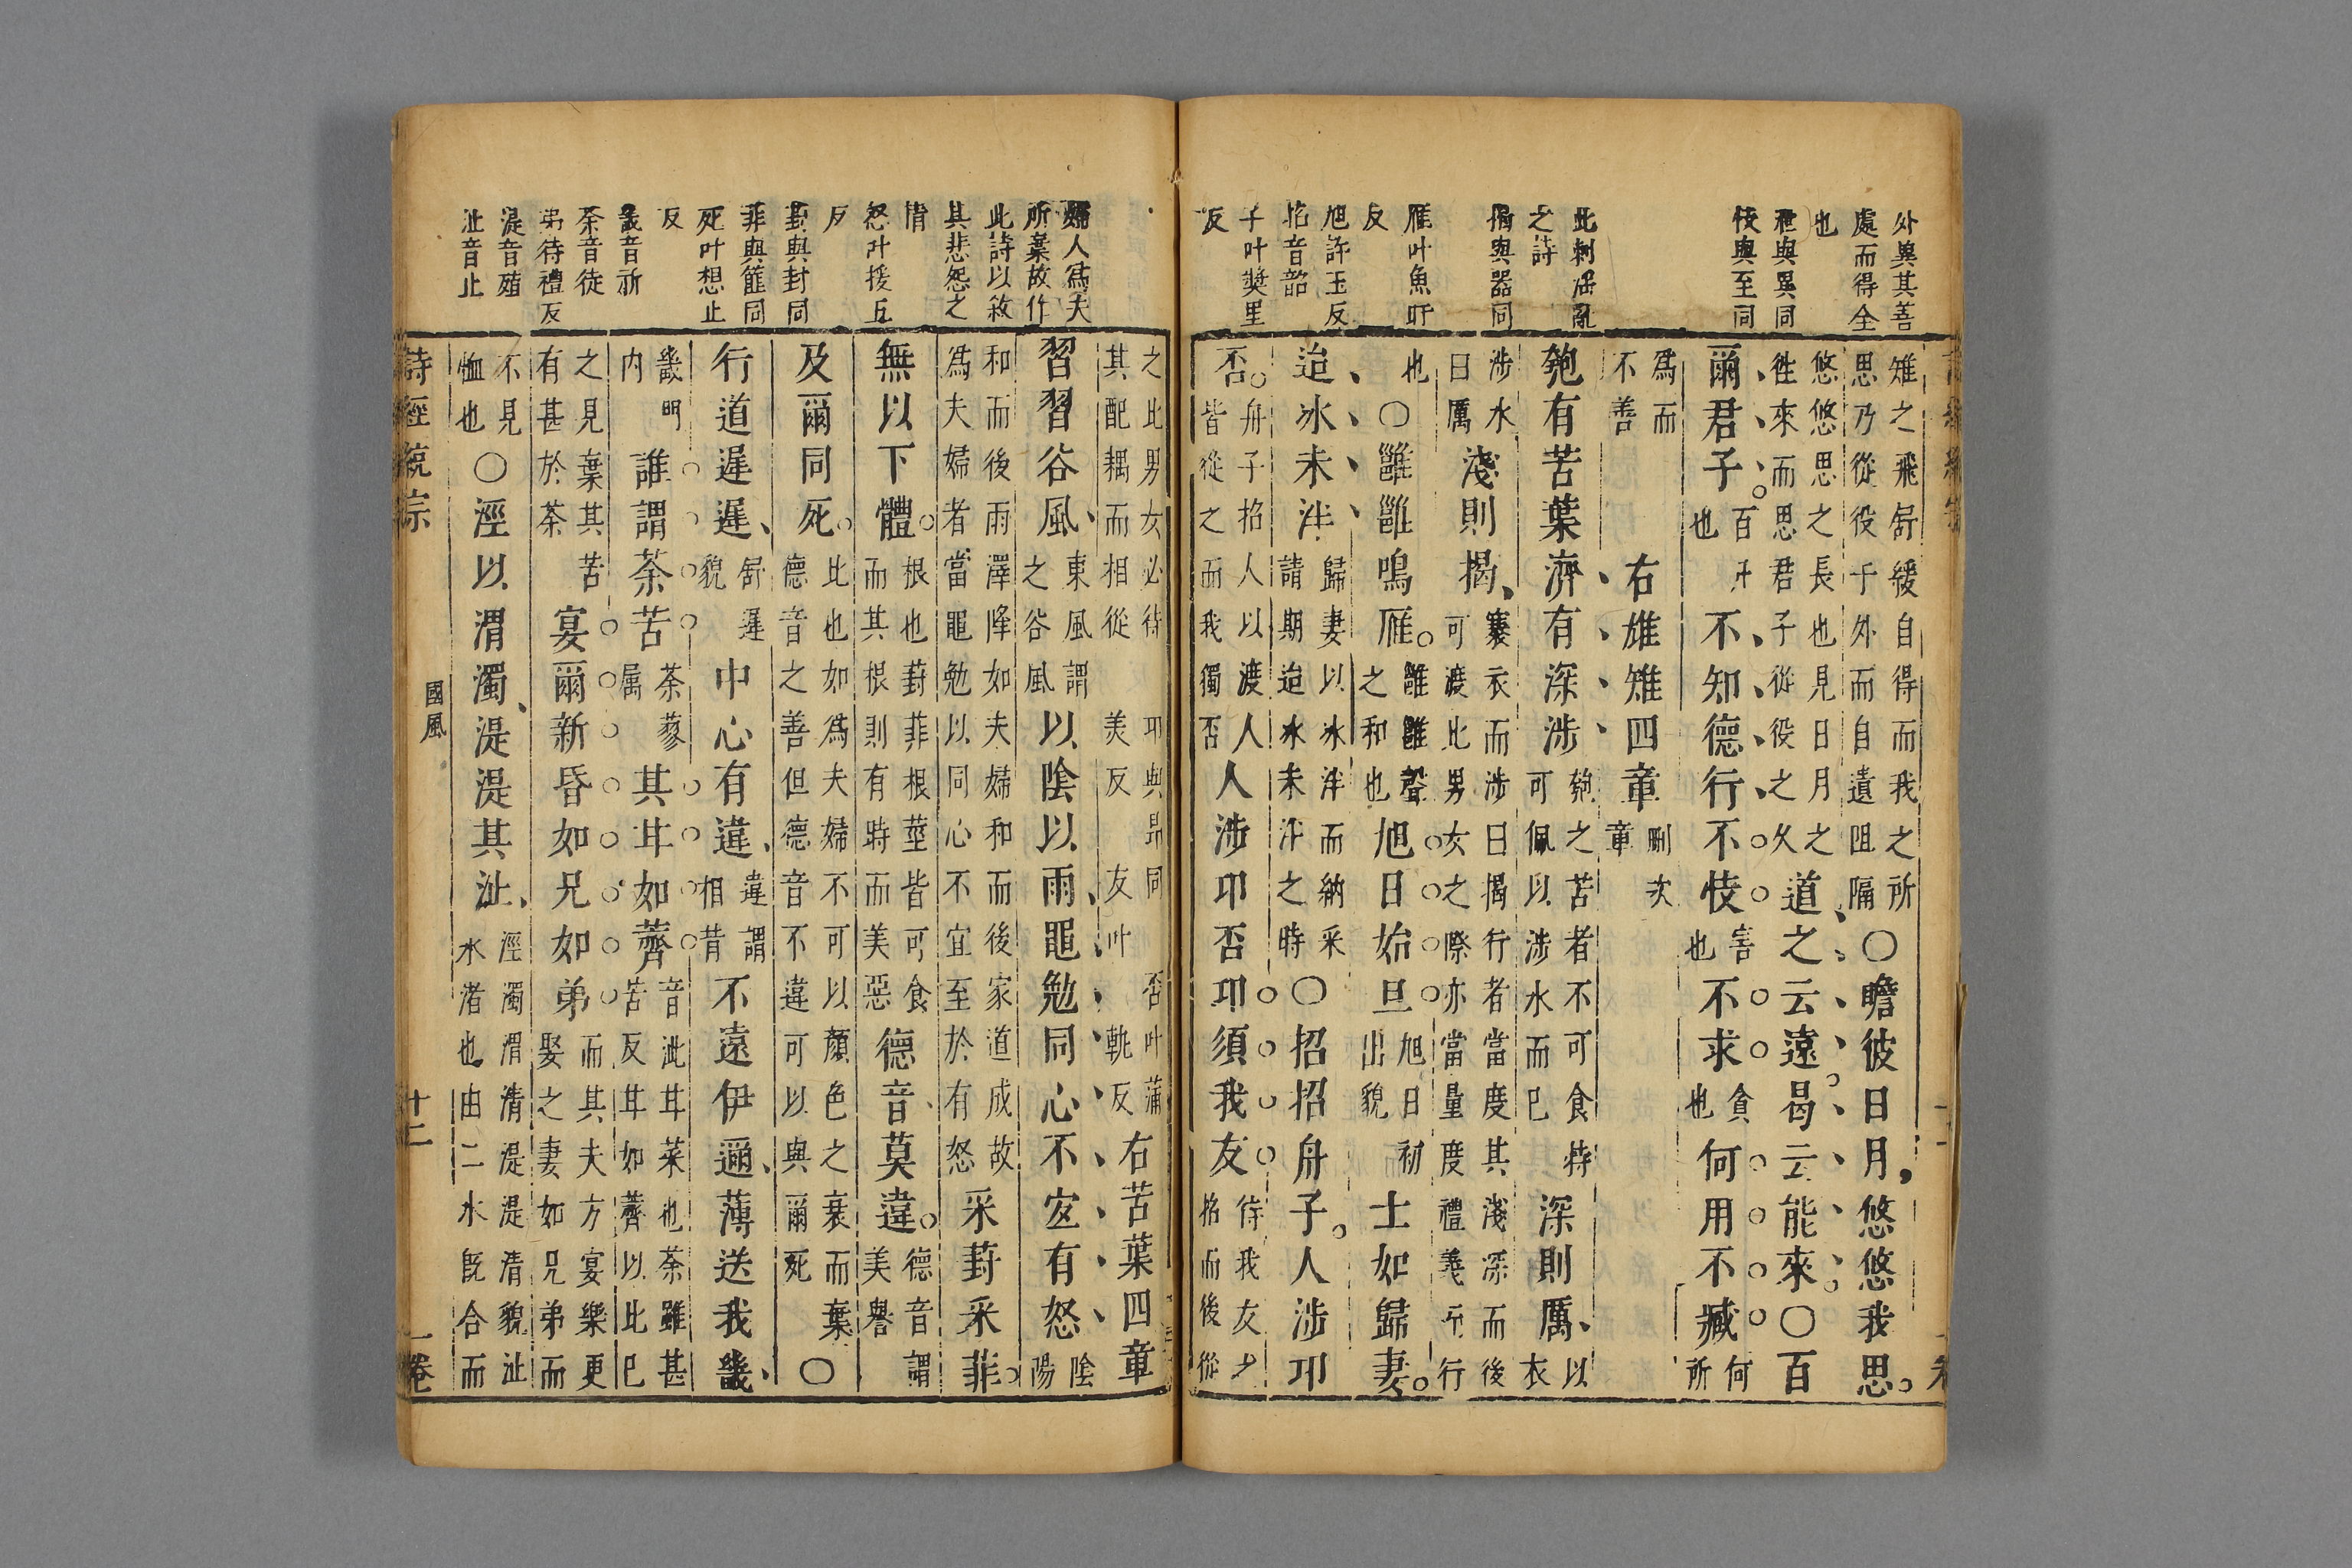 外冀其善
處而得全
也
雅與異同
忮與至同
此刺淫亂
之詩
揭與器同
雁叶魚旰
反
旭許玉反
招音韶
子叶奬里
反
雉之飛舒緩自得而我之所
思乃從役于外而自遺阻隔
○瞻彼日月悠悠我思
悠悠思之長也見日月之
徃來而思君子從役之久
道之云遠曷云能來○百
爾君子
百
也
不知德行不忮
害
也
不求
貪
也
何用不臧
何
所
爲而
不善
右雄雉四章
刪次
章
匏有苦葉濟有深涉
匏之苦者不可食特
可佩以涉水而已
深則厲
以
衣
涉水
曰厲
淺則揭
褰衣而涉曰揭行者當度其淺深而後
可渡此男女之際亦當量度禮義而行
也
○雝雝鳴雁
雝雝聲
之和也
旭日始旦
旭日初
出貌
士如歸妻
迨冰未泮
歸妻以冰泮而納采
請期迨冰未泮之時
○招招舟子人涉卬
否
舟子招人以渡人
皆從之而我獨否
人涉卬否卬須我友
待我友之
招而後從
之此男女必待
其配耦而相從
卬與昻同
美反
友叶
否叶蒲
軌反
右苦葉四章
婦人爲夫
所棄故作
此詩以敘
其悲怨之
情
怒叶援五
反
葑與封同
菲與篚同
死叶想止
反
畿音祈
荼音徒
弟待禮反
湜音殖
沚音止
習習谷風
東風謂
之谷風
以陰以雨黽勉同心不宜有怒
陰
陽
和而後雨澤降如夫婦和而後家道成故
爲夫婦者當黽勉以同心不宜至於有怒
采葑采菲
無以下體
根也葑菲根莖皆可食
而其根則有時而美惡
德音莫違
德音謂
美譽
及爾同死
比也如爲夫婦不可以顏色之衰而棄
德音之善但德音不違可以與爾死
○
行道遲遲
舒遲
貌
中心有違
違謂
相昔
不遠伊邇薄送我畿
畿門
内
誰謂荼苦
荼蓼
属
其甘如薺
音泚甘菜也荼雖甚
苦反甘如薺以比已
之見棄其苦
有甚於荼
宴爾新昏如兄如弟
而其夫方宴樂更
娶之妻如兄弟而
不見
恤也
○涇以渭濁湜湜其沚
涇濁渭清湜湜清貌沚
水渚也由二水旣合而
詩經統宗
國風
十二
一卷